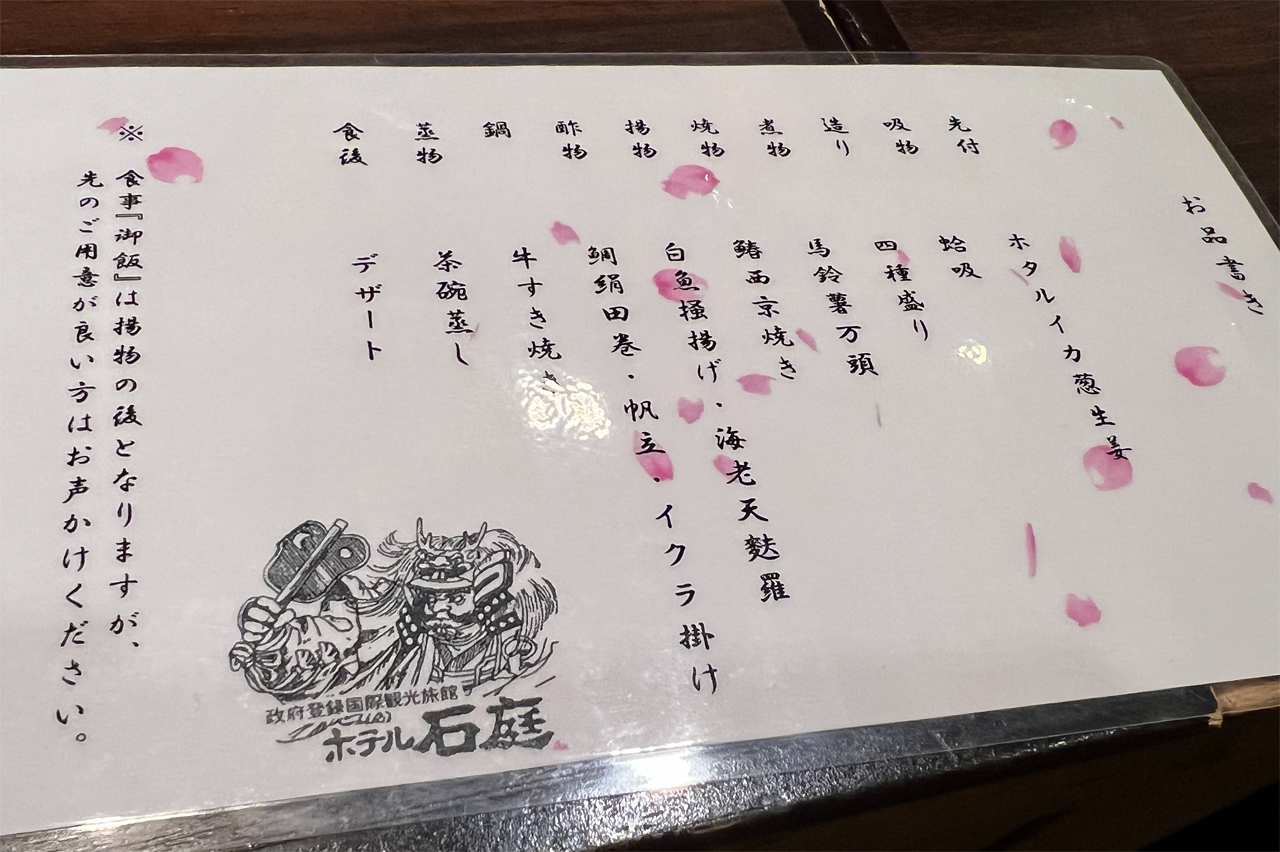 お品書き
先付 ホタルイカ葱生姜
吸物 蛤吸
造り 四種盛り
煮物 馬鈴薯万頭
焼物 鰆西京焼き
揚物 白魚掻揚げ・海老天麩羅
酢物 鯛絹田巻・帆立・イクラ掛け
鍋 牛すき焼き
蒸物 茶碗蒸し
食後 デザート
※ 食事『御飯』は揚物の後となりますが、
先のご用意が良い方はお声かけください。
政府登録国際観光旅館
ホテル石庭